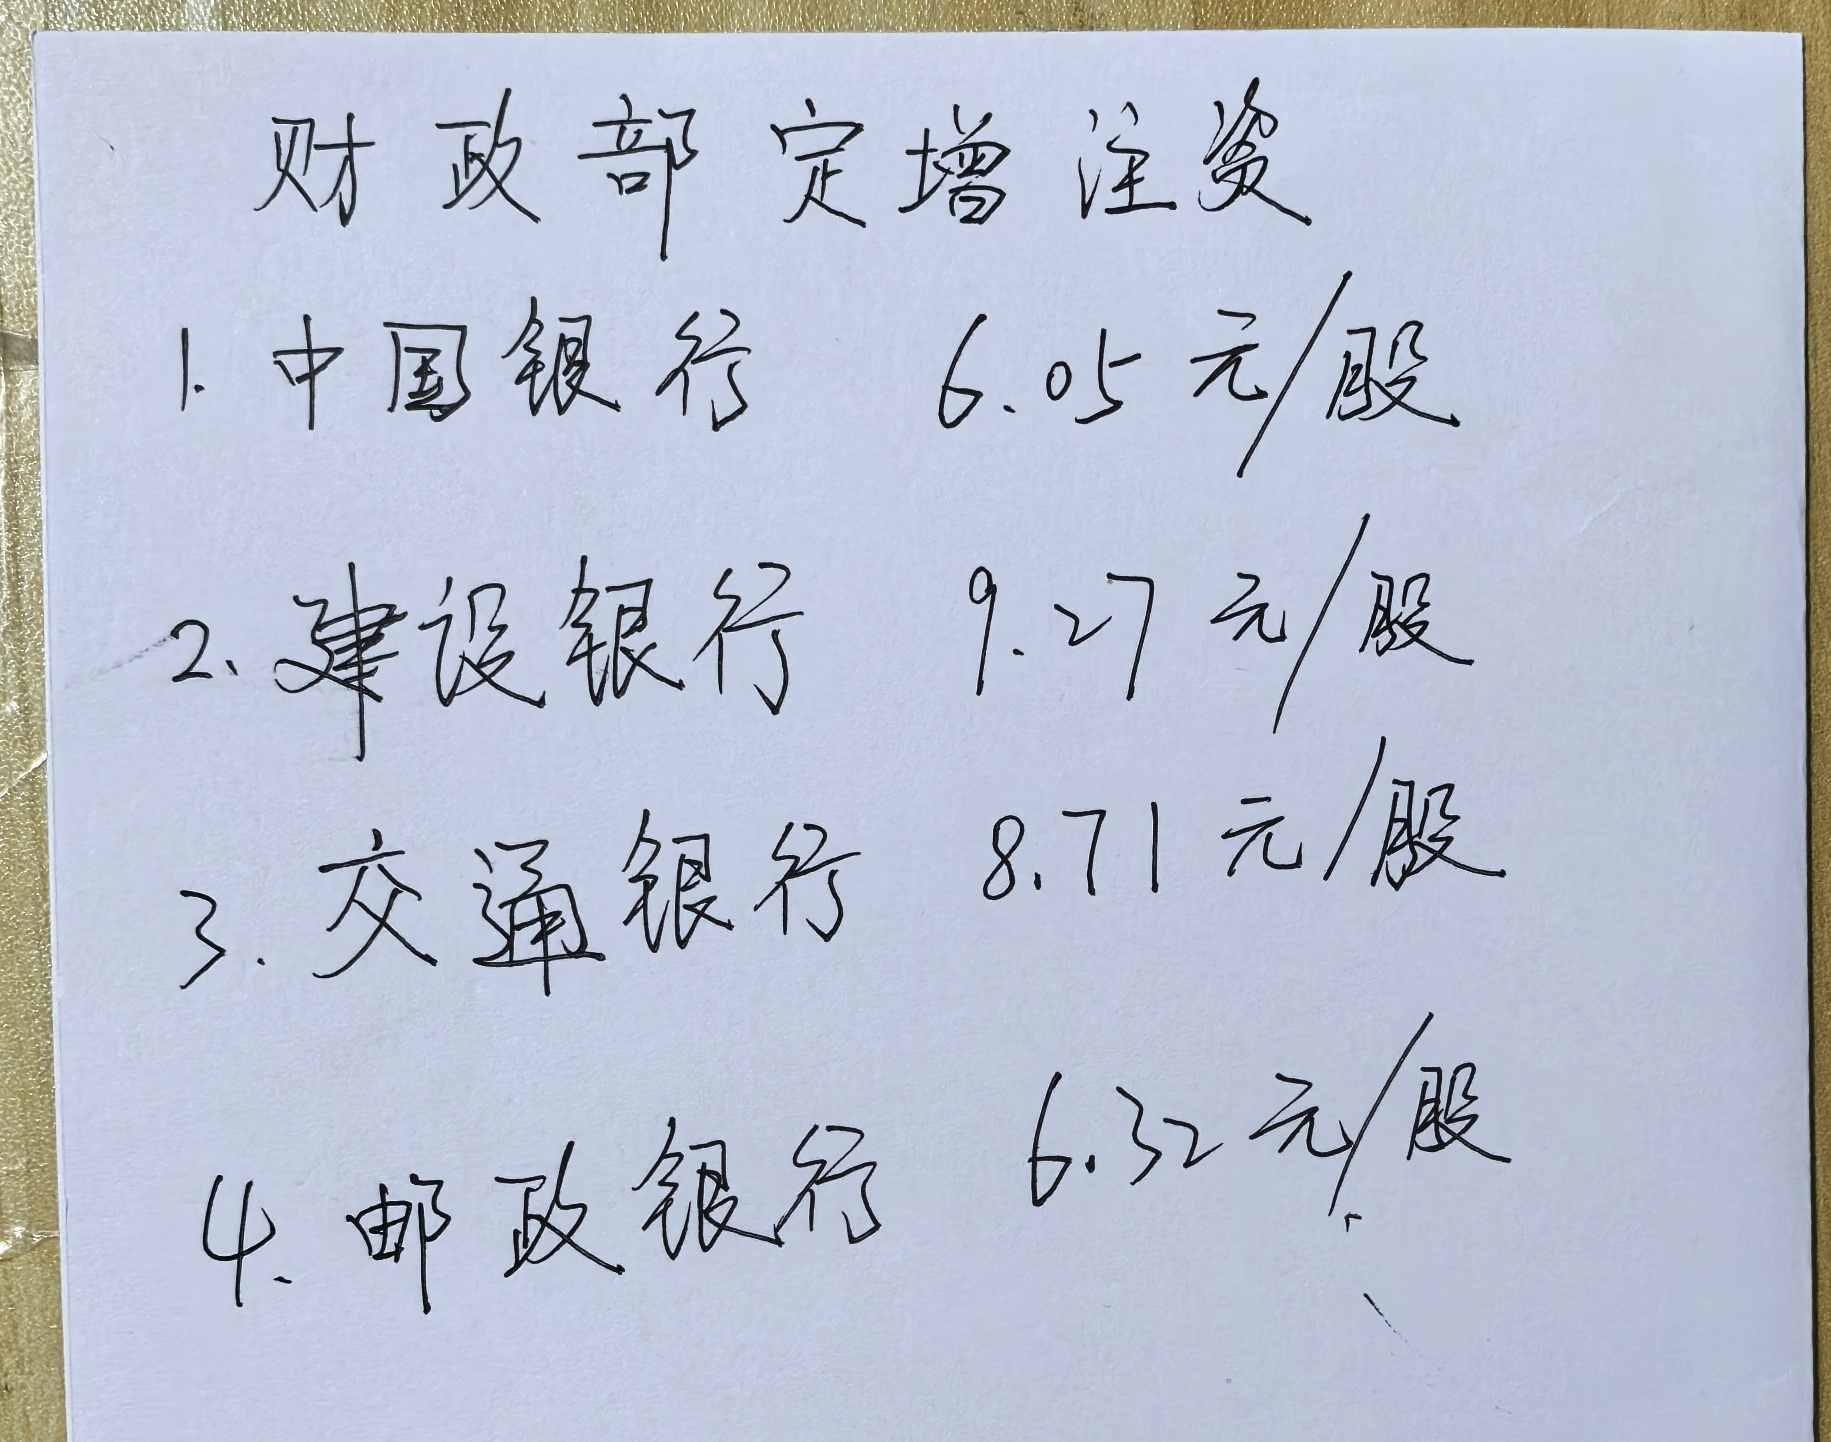 财政部定增注资
1. 中国银行 6.05元/股
2. 建设银行 9.27元/股
3. 交通银行 8.71元/股
4. 邮政银行 6.32元/股